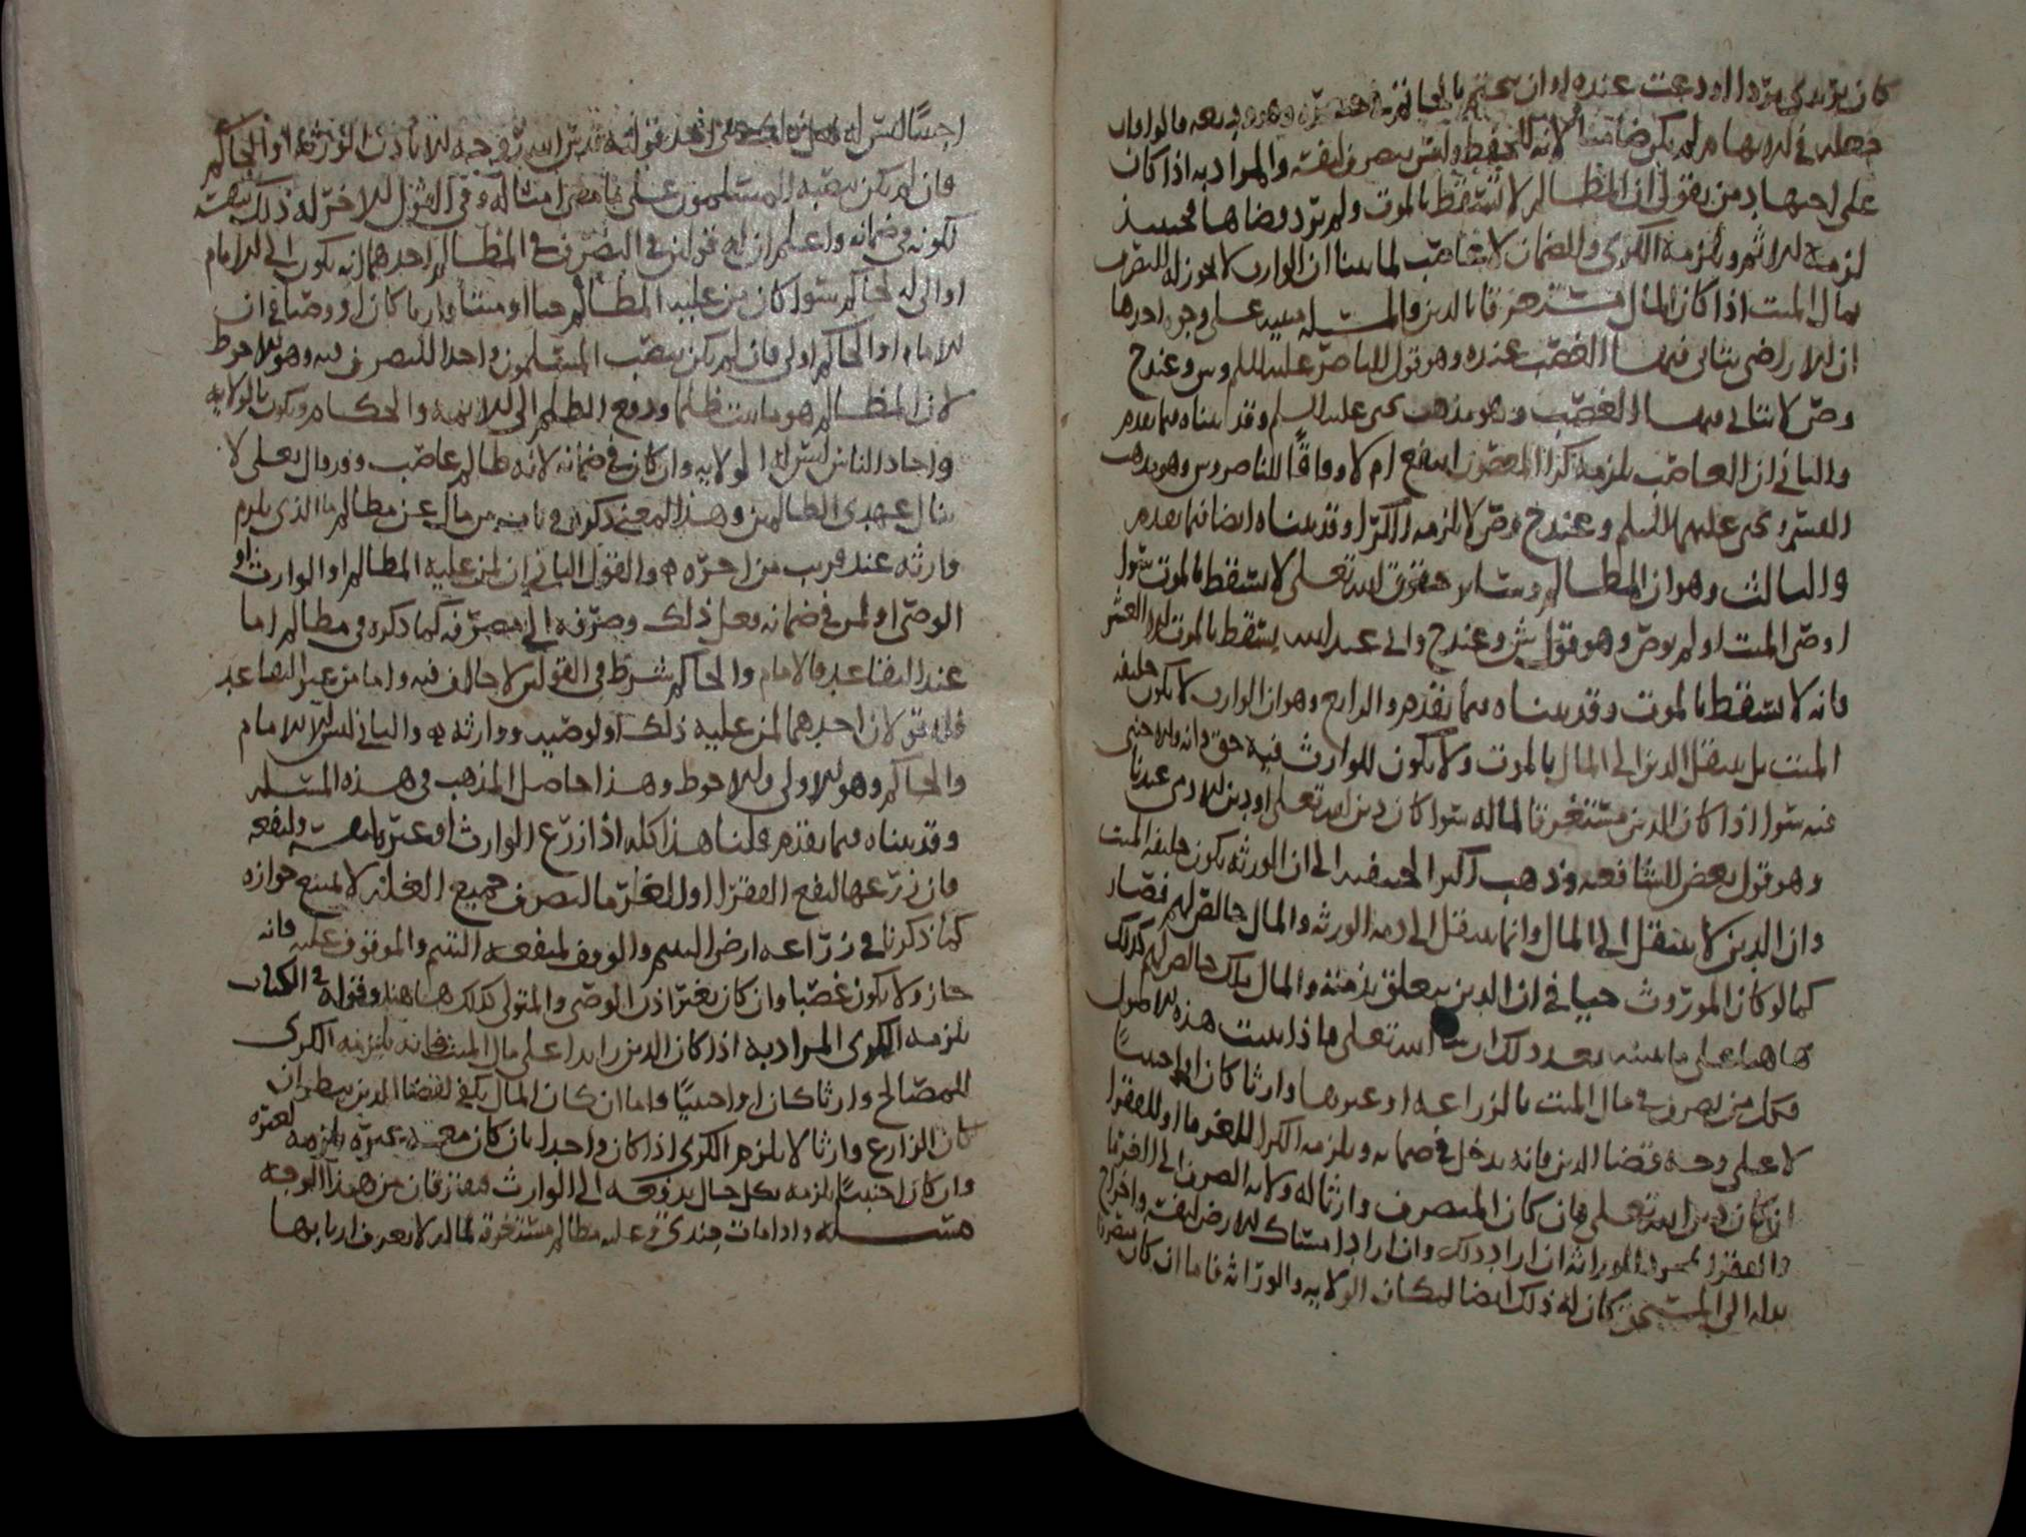 كان يريد كي يرد الوداعت عنده او ان يختم بالخاتم في خنصره وهو
جعله في الابهام لم يكن ضامنا لانه للحفظ وليس بتصرف لنفسه والمراد به اذا كان
على اجتهاد من يقول ان المظالم لا تسقط بالموت ولم يرد قضاها فحينئذ
لزمه الاثم ويلزمه الكرى والضمان لانه غاصب لما بينا ان الوارث لا يجوز له التصرف
بمال الميت اذا كان المال مستغرقا بالدين والمسئلة مبنية على وجوه احدها
ان الاراضي يتاتى فيها الغصب عنده وهو قول الناصر عليه السلم وس وعند ح
وص لا يتاتى فيها الغصب وهو مذهب يحيى عليه السلم وقد بيناه فيما تقدم
والثاني ان الغاصب يلزمه كرا المغصوب انتفع ام لا وفاقا للناصر وس وهو مذهب
القسم ويحيى عليهما السلم وعند ح وص لا يلزمه الكرا وقد بيناه ايضا فيما تقدم
والثالث وهو ان المظالم وسائر حقوق الله تعلى لا تسقط بالموت سوا
اوصى الميت او لم يوص وهو قول ش وعند ح والى عبد الله يسقط بالموت الا العشر
فانه لا يسقط بالموت وقد بيناه فيما تقدم والرابع وهو ان الوارث لا يكون خليفة
الميت بل ينتقل الدين الى المال بالموت ولا يكون للوارث فيه حق وانه والاجنبي
فيه سوا اذا كان الدين مستغرقا لماله سوا كان دين الله تعلى او دين الادمي عندنا
وهو قول بعض الشافعيه وذهب اكثر الحنفيه الى ان الورثه يكون خليفة الميت
وان الدين لا ينتقل الى المال وانما ينتقل الى ذمة الورثه والمال خالص لهم فصار
كما لو كان الموروث حيا في ان الدين يتعلق بذمته والمال ملك خالص لهم كذلك
هاهنا على ما نبينه بعد ذلك ان شا الله تعلى فاذا ثبت هذه الاصول
فكل من تصرف في مال الميت بالزراعة او غيرها وارثا كان او اجنبيا
لا على وجه قضا الدين فانه يدخل في ضمانه ويلزمه الكرا للغرما او للفقرا
ان كان دين الله تعلى فان كان المتصرف وارثا له ولاية الصرف الى الغرما
والفقرا بمجرد الوراثه ان اراد ذلك وان اراد امساك الارض لنفسه واخراج
بدله الى المستحق كان له ذلك ايضا لمكان الولايه والوراثه فاما ان كان متصرفا
اجنبيا ليس له قوله قد تبين الله توجبه الا باذن الورثة او الحاكم
فان لم يكن نصبه المسلمون على ما مضى امثاله وفي القول الاخر له ذلك بنفسه
لكونه في ضمانه واعلم ان له قولين في التصرف في المظالم احدهما انه يكون الى الامام
او الى الحاكم سوا كان من عليه المظالم حيا او ميتا وارثا كان او وصيا في ان
الامام او الحاكم اولى فان لم يكن نصب المسلمون واحدا للتصرف فيه وهو الاحوط
لان المظالم هو ما ثبت ظلما ودفع الظلم الى الائمه والحكام ويكون بالولايه
واحاد الناس ليس له الولايه وان كان في ضمانه لانه ظالم غاصب وقد قال تعلى لا
ينال عهدي الظالمين وهذا المعنى ذكره في باب من مال عن مظالم ما الذي يلزم
وارثه عند قريب من اخره والقول الثاني ان لمن عليه المظالم او الوارث او
الوصي او لمن في ضمانه فعل ذلك وصرفه الى مصرفه كما ذكره في مظالم اما
عند التقاعد فالامام والحاكم شرط في القولين لا خالف فيه واما من غير التقاعد
فله قولان احدهما لمن عليه ذلك او لوصيه ووارثه والثاني ليس الا للامام
والحاكم وهو الاولى والاحوط وهذا حاصل المذهب في هذه المسئلة
وقد بيناه فيما تقدم قلنا هذا كله اذا زرع الوارث او غيره لنفسه ولنفعه
فان زرعها لنفع الفقرا او الغرما ليصرف جميع الغله لا يمتنع جوازه
كما ذكرنا في زراعه ارض اليتيم والوقوف لمنفعة اليتيم والموقوف عليه فانه
جاز ولا يكون غصبا وان كان بغير اذن الوصي والمتولي كذلك هاهنا وقوله في الكتاب
يلزمه الكرى المراد به اذا كان الدين زايدا على مال الميت فانه يلزمه الكرى
للمصالح وارثا كان او اجنبيا واما ان كان المال يكفي لقضا الدين ينظر ان
كان الزارع وارثا لا يلزم الكرى اذا كان واحدا بان كان معه غيره يلزمه لغيره
وان كان اجنبيا يلزمه بكل حال يدفعه الى الوارث فيفترقان من هذا الوجه
مسئلة واذا مات جندي وعليه مظالم مستغرقة لماله لا يعرف اربابها